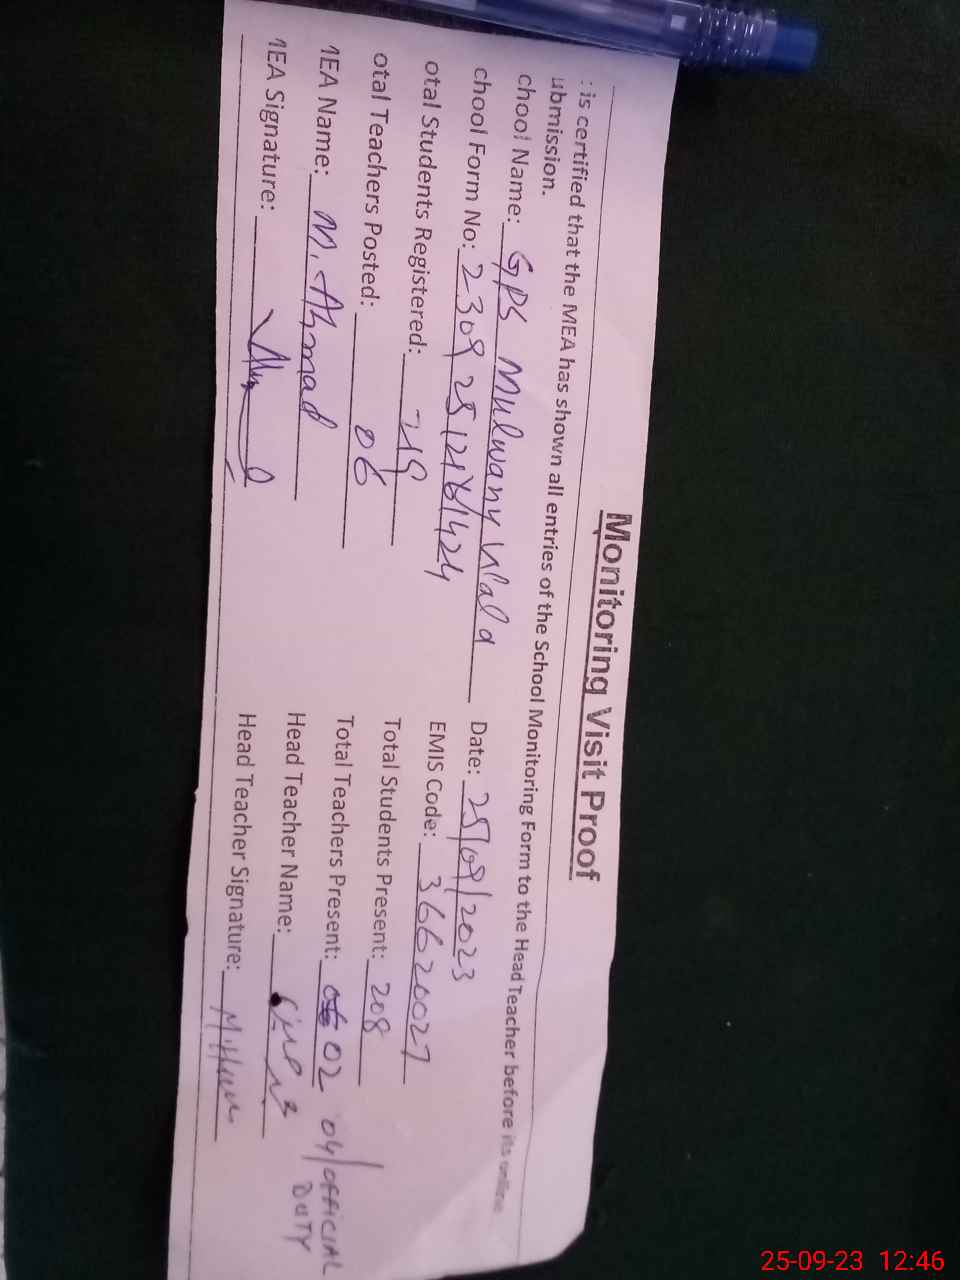 Monitoring Visit Proof
: is certified that the MEA has shown all entries of the School Monitoring Form to the Head Teacher before its online
ubmission.
chool Name: GPS Mulwany Wala Date: 25/09/2023
chool Form No: 2309 25 12181424 EMIS Code: 36620027
otal Students Registered: 219 Total Students Present: 208
otal Teachers Posted: 06 Total Teachers Present: 02 04/OFFICIAL DUTY
MEA Name: M. Ahmad Head Teacher Name:
MEA Signature: Head Teacher Signature:
25-09-23 12:46